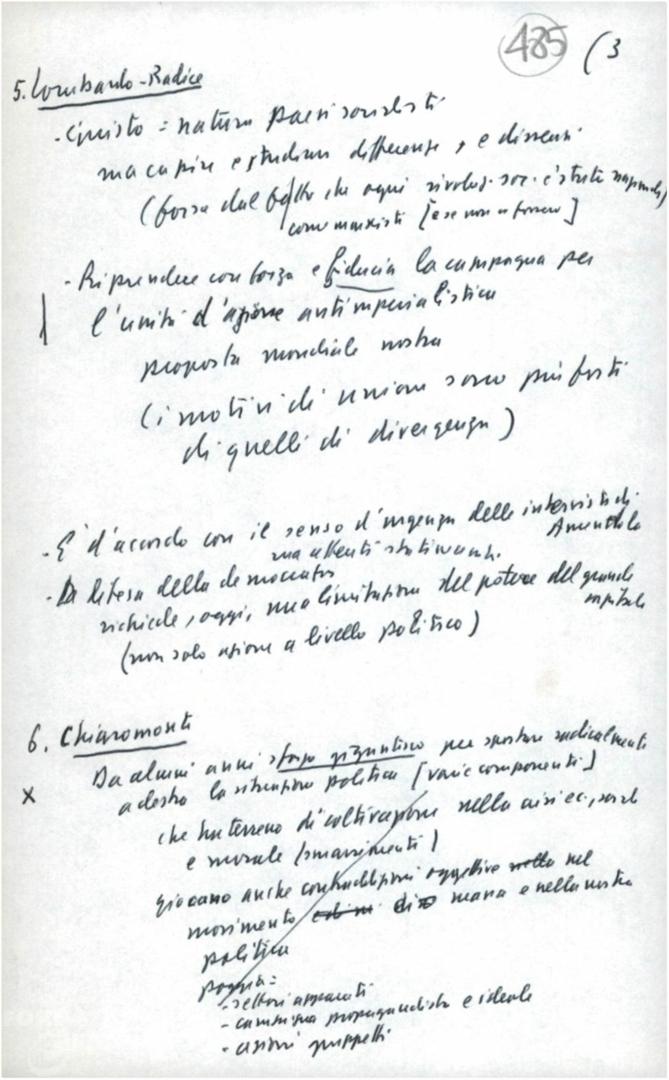 485 (3
5. Lombardo-Radice
- Giusto = natura paesi socialisti
ma capire e studiare differenze, e dissensi
(forse dal fatto che ogni rivoluz. soc. c'è stata
come marxisti [e se non
- Riprendere con forza e fiducia la campagna per
l'unità d'azione antimperialistica
proposta mondiale nostra
(i motivi di unione sono più forti
di quelli di divergenza)
- E' d'accordo con il senso d'urgenza delle intervista di
Amendola
ma attenti
- La difesa della democrazia
richiede, oggi, una limitazione del potere del grande
capitale
(non solo azione a livello politico)
6. Chiaromonte
x Da alcuni anni sforzo gigantesco per spostare radicalmente
a destra la situazione politica [varie componenti]
che ha terreno di coltivazione nella crisi ec., sociale
e morale (smarrimenti)
giocano anche contraddizioni oggettive nel
movimento di massa e nella nostra
politica
poggia =
- settori apparati
- campagna propagandistica e ideale
- azioni gruppetti